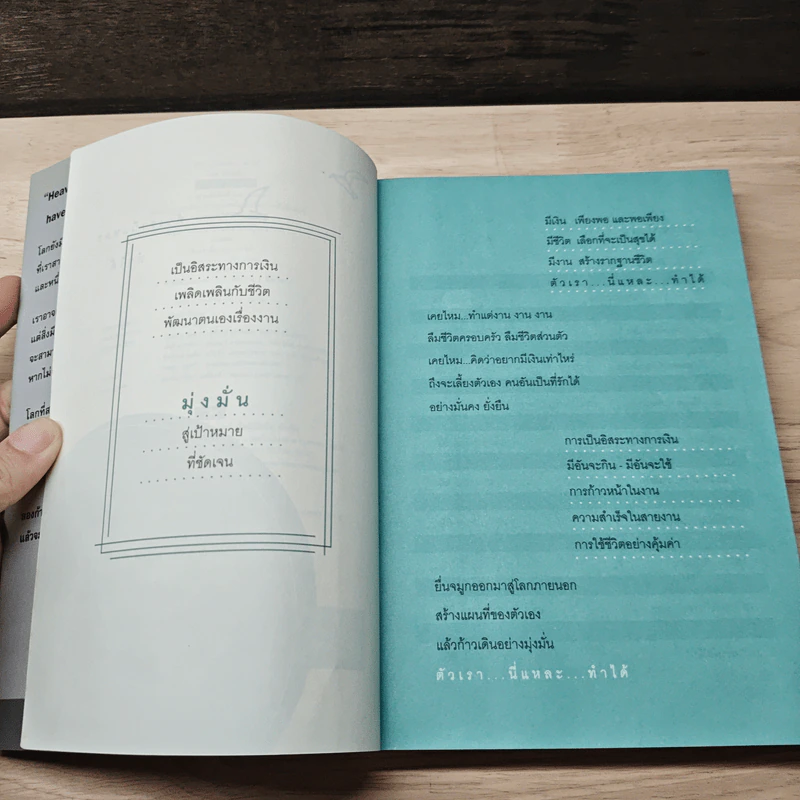 "Heav
have
โลกยังมี
ที่เราสา
และหนี
เราอาจ
แต่สิ่งมี
จะสาม
หากไม่
โลกที่ส
ลองก้า
แล้วจะ
เป็นอิสระทางการเงิน
เพลิดเพลินกับชีวิต
พัฒนาตนเองเรื่องงาน
มุ่งมั่น
สู่เป้าหมาย
ที่ชัดเจน
มีเงิน เพียงพอ และพอเพียง
มีชีวิต เลือกที่จะเป็นสุขได้
มีงาน สร้างรากฐานชีวิต
ตัวเรา...นี่แหละ...ทำได้
เคยไหม...ทำแต่งาน งาน งาน
ลืมชีวิตครอบครัว ลืมชีวิตส่วนตัว
เคยไหม...คิดว่าอยากมีเงินเท่าไหร่
ถึงจะเลี้ยงตัวเอง คนอันเป็นที่รักได้
อย่างมั่นคง ยั่งยืน
การเป็นอิสระทางการเงิน
มีอันจะกิน - มีอันจะใช้
การก้าวหน้าในงาน
ความสำเร็จในสายงาน
การใช้ชีวิตอย่างคุ้มค่า
ยื่นจมูกออกมาสู่โลกภายนอก
สร้างแผนที่ของตัวเอง
แล้วก้าวเดินอย่างมุ่งมั่น
ตัวเรา...นี่แหละ...ทำได้